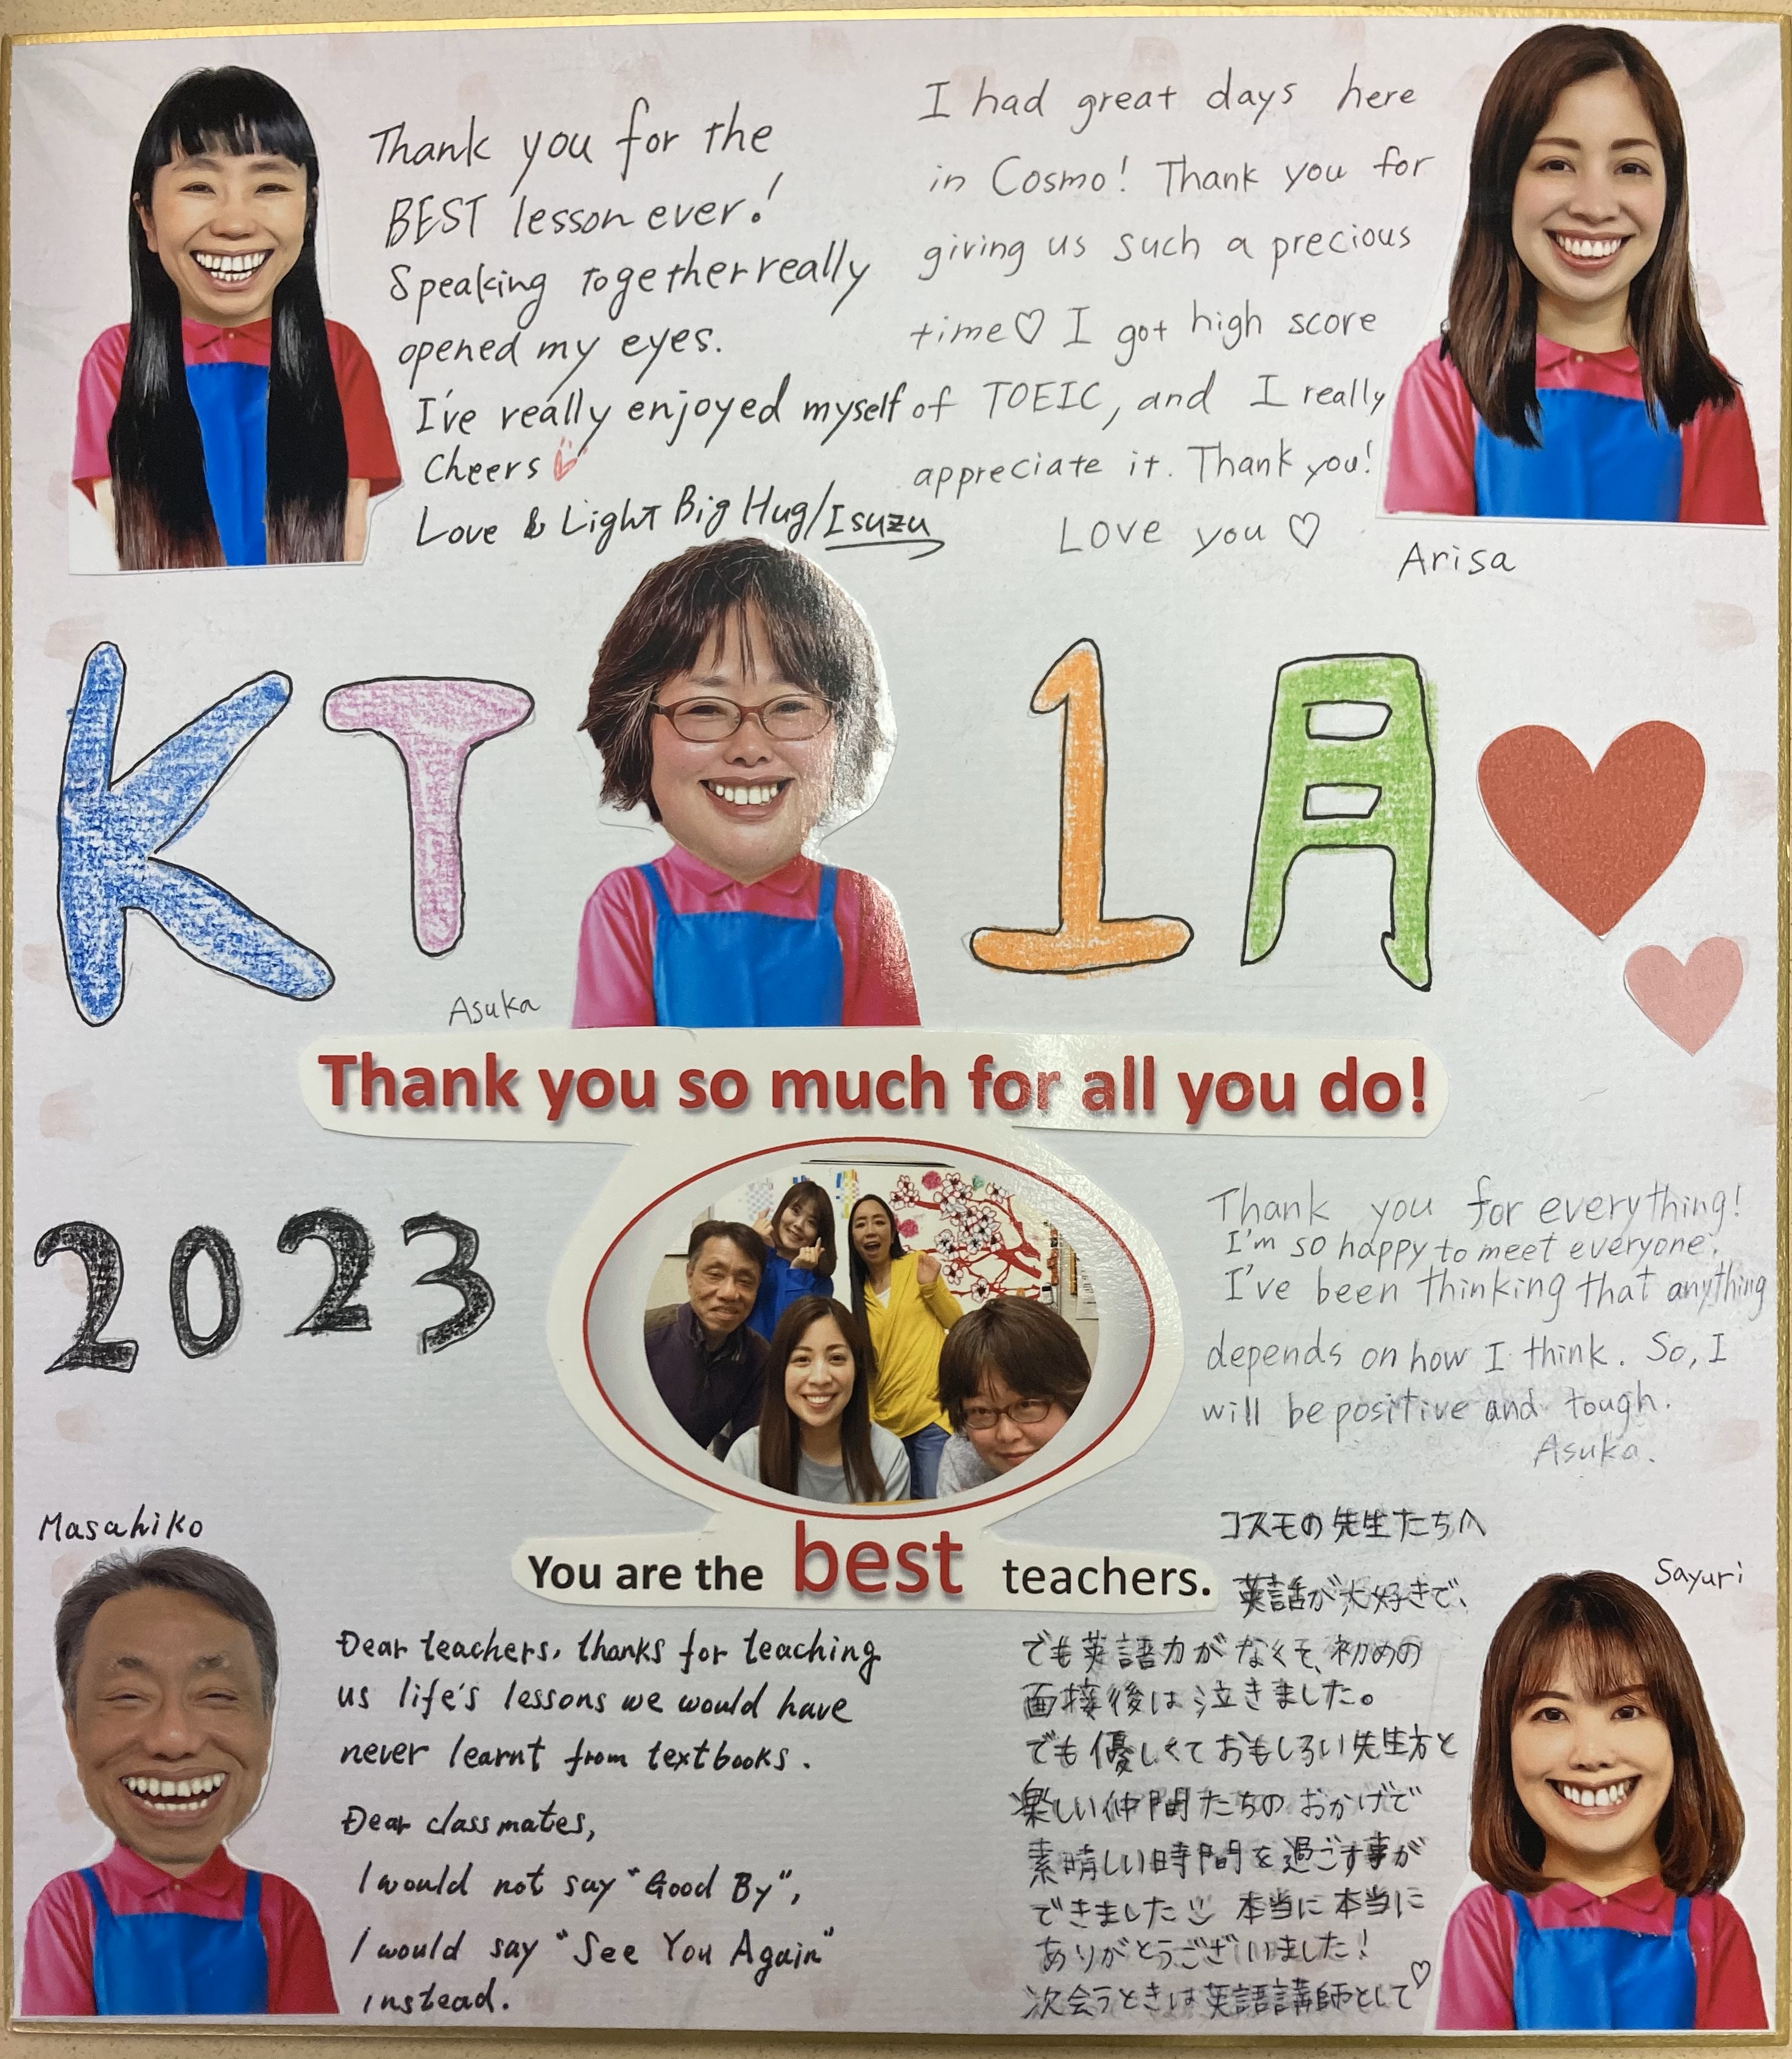 Thank you for the
BEST lesson ever!
Speaking together really
opened my eyes.
I've really enjoyed myself
Cheers
Love & Light Big Hug/Isuzu
I had great days here
in Cosmo! Thank you for
giving us such a precious
time♡ I got high score
of TOEIC, and I really
appreciate it. Thank you!
Love you ♡
Arisa
KT 1月
Asuka
Thank you so much for all you do!
2023
Thank you for everything!
I'm so happy to meet everyone.
I've been thinking that anything
depends on how I think. So, I
will be positive and tough.
Asuka.
You are the best teachers.
Masahiko
Dear teachers, thanks for teaching
us life's lessons we would have
never learnt from textbooks.
Dear classmates,
I would not say "Good By",
I would say "See You Again"
instead.
Sayuri
コスモの先生たちへ
英語が大好きで、
でも英語力がなくそ、初めの
面接後は泣きました。
でも優しくておもしろい先生方と
楽しい仲間たちのおかげで
素晴しい時間を過ごす事が
できました 本当に本当に
ありがとうございました!
次会うときは英語講師として♡